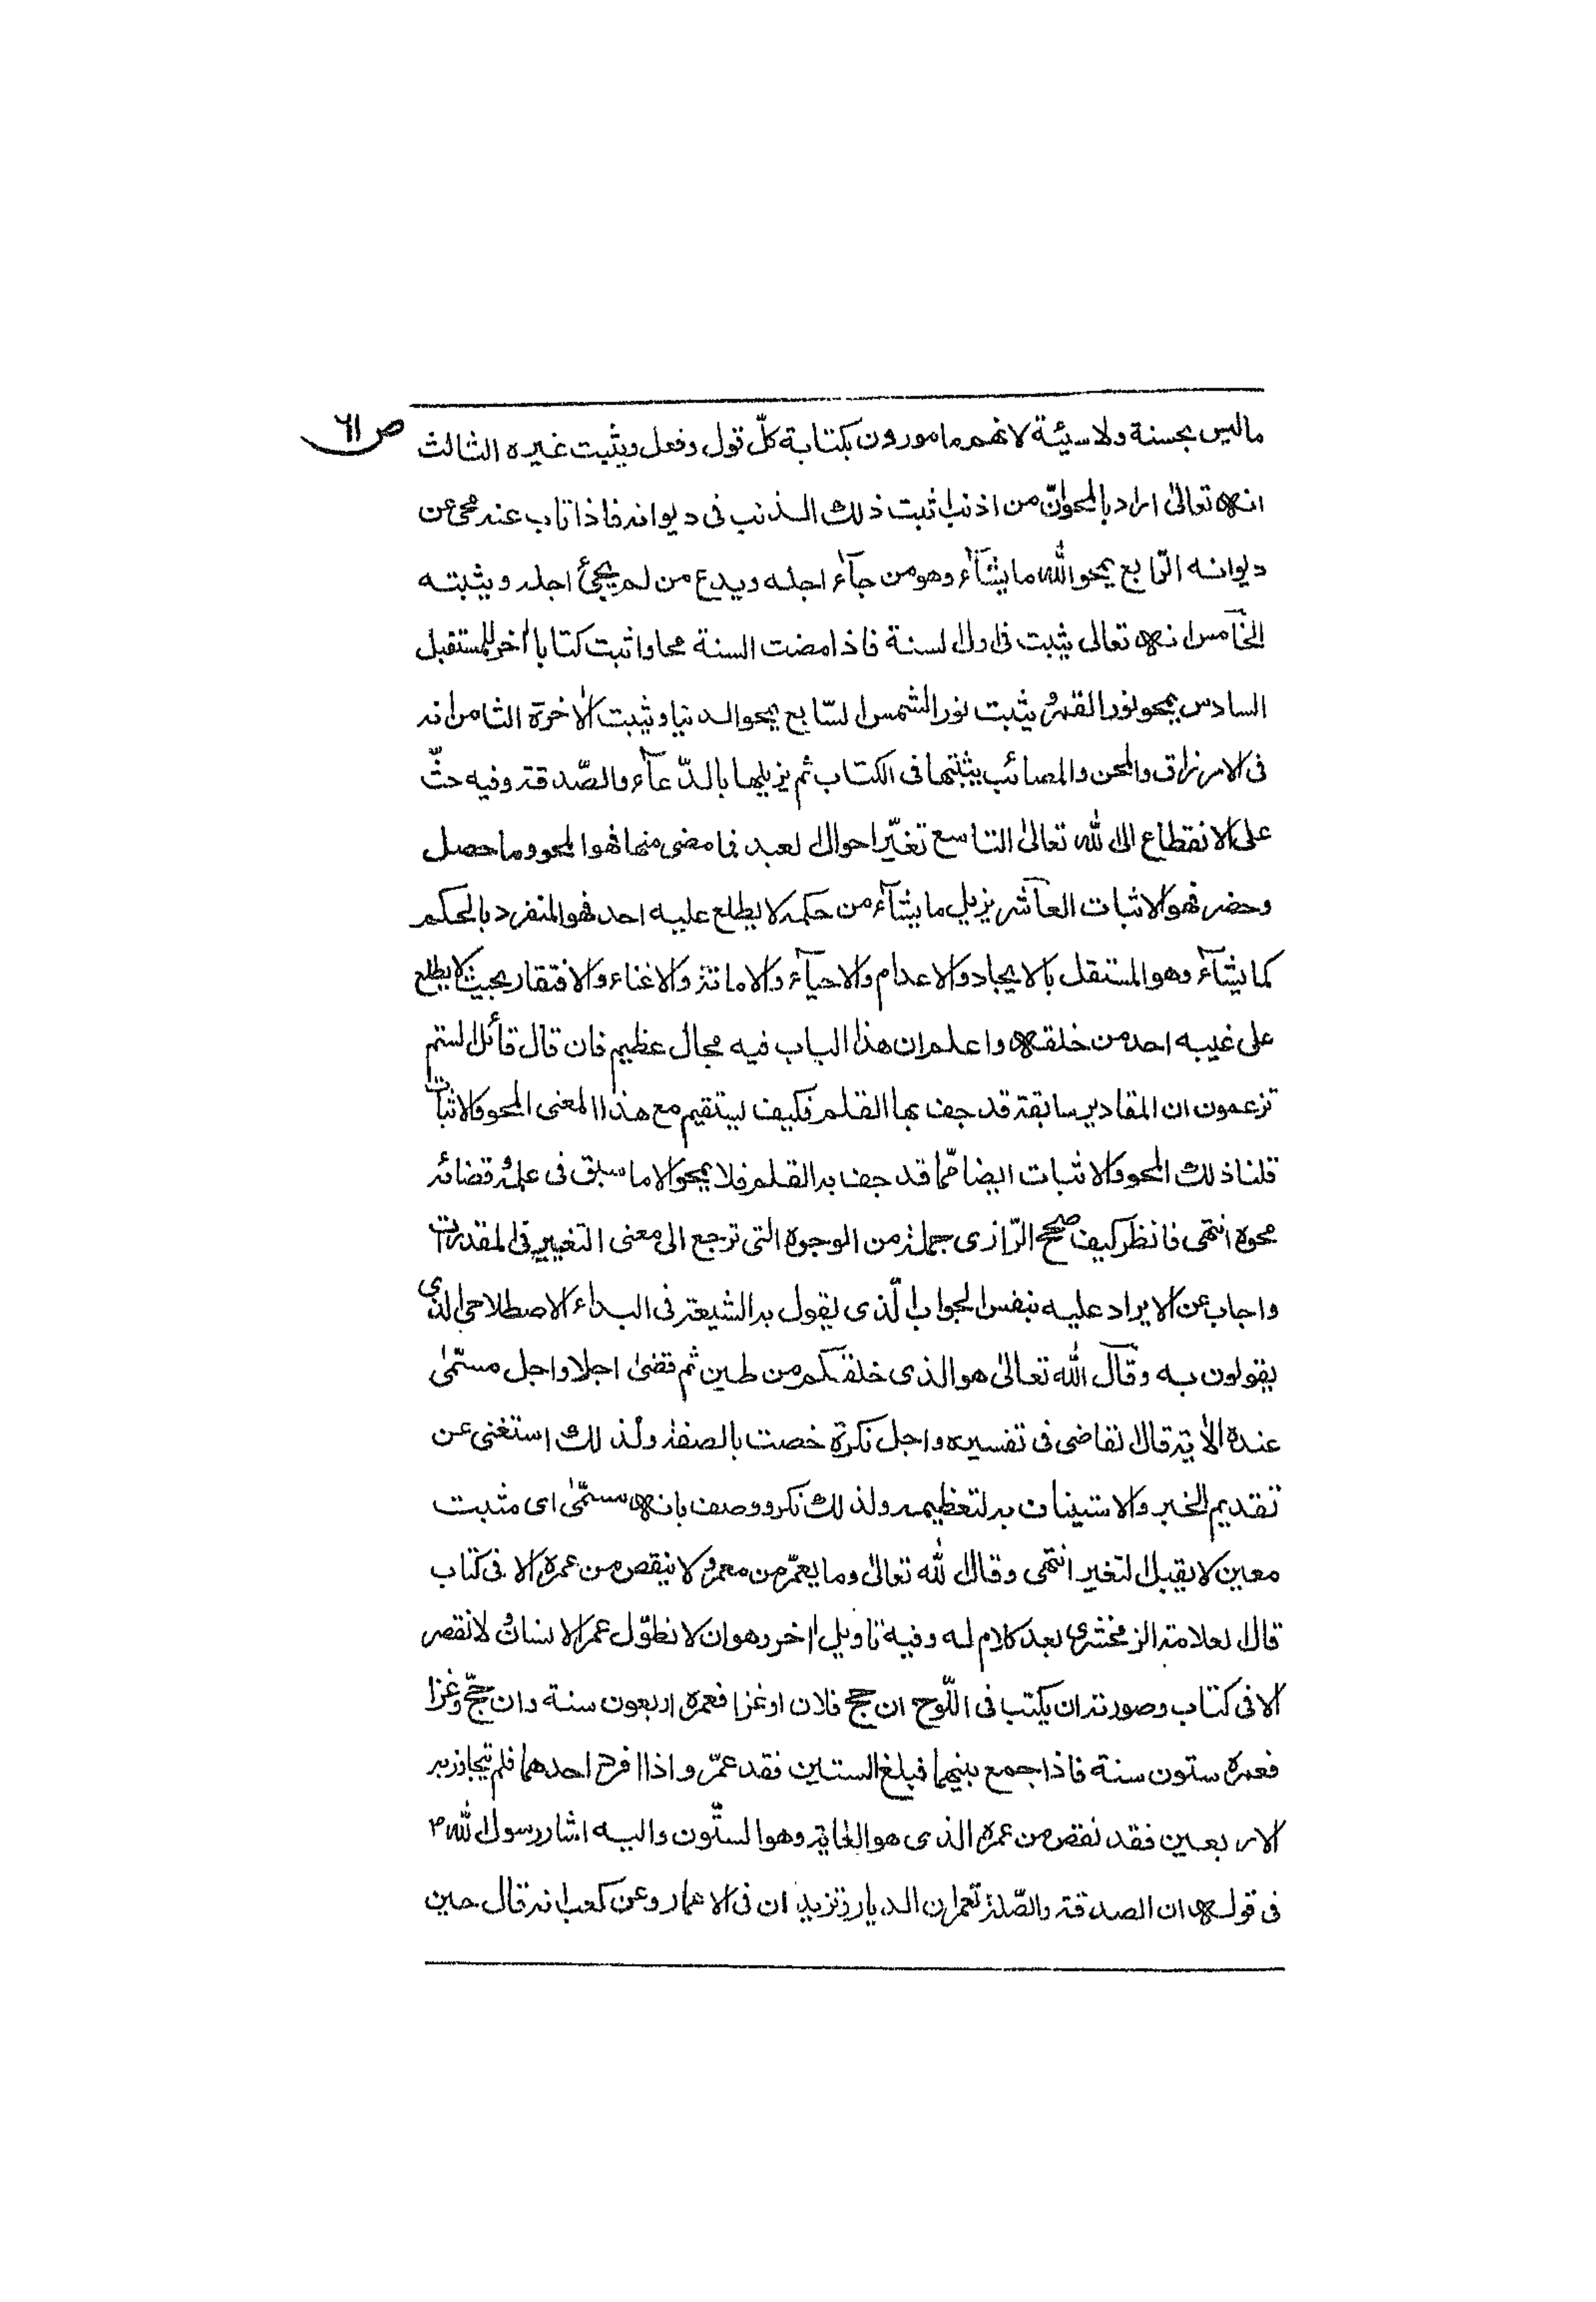 ص ٦١
ماليس بحسنة ولا سيئة لانهم مامورون بكتابة كلّ قول وفعل ويثبت غيره الثالث
انه تعالىٰ اراد بالمحو انّ من اذنب اثبت ذلك الذنب فى ديوانه فاذا تاب عنه محى عن
ديوانه الرّابع يمحو الله ما يشآء وهو من جآء اجله ويدع من لم يجئ اجله ويثبته
الخامس انه تعالى يثبت فى اول السنة فاذا مضت السنة محا واثبت كتابا اٰخر للمستقبل
السادس يمحو نور القمر ويثبت نور الشمس السّابع يمحو الدنيا ويثبت الاٰخرة الثامن انه
فى الارزاق والمحن والمصائب يثبتها فى الكتاب ثم يزيلها بالدّعآء والصّدقة وفيه حثّ
على الانقطاع الى الله تعالىٰ التاسع تغيّر احوال العبد فما مضى منها فهو المحو وما حصل
وحضر فهو الاثبات العاشر يزيل ما يشآء من حكمه لا يطلع عليه احد فهو المنفرد بالحكم
كما يشآء وهو المستقل بالايجاد والاعدام والاحيآء والاماتة والاغناء والافتقار بحيث لا يطلع
على غيبه احد من خلقه واعلم ان هذا الباب فيه مجال عظيم فان قال قائل الستم
تزعمون ان المقادير سابقة قد جف بها القلم فكيف يستقيم مع هذا المعنى المحو والاثبات
قلنا ذلك المحو والاثبات ايضا ممّا قد جف به القلم فلا يمحو الا ما سبق فى علمه وقضائه
محوه انتهى فانظر كيف صحح الرّازى جملة من الوجوه التى ترجع الى معنى التغيير فى المقدرات
واجاب عن الايراد عليه بنفس الجواب الّذى يقول به الشيعة فى البداء الاصطلاحى الذى
يقولون به وقال الله تعالىٰ هو الذى خلقكم من طين ثم قضىٰ اجلا واجل مسمّىٰ
عنده الاٰية قال القاضى فى تفسيره واجل نكرة خصت بالصفة ولذلك استغنى عن
تقديم الخبر والاستيناف به لتعظيمه ولذلك نكر ووصف بانه مسمّىٰ اى مثبت
معين لا يقبل التغير انتهى وقال الله تعالىٰ وما يعمّر من معمر ولا ينقص من عمره الا فى كتاب
قال العلامة الزمخشرى بعد كلام له وفيه تاويل اٰخر وهو ان لا نطوّل عمر الانسان ولا نقصر
الا فى كتاب وصورته ان يكتب فى اللّوح ان حج فلان او غزا فعمره اربعون سنة وان حجّ وغزا
فعمره ستون سنة فاذا جمع بينهما فبلغ الستين فقد عمّر واذا افرد احدهما فلم يتجاوز به
الاربعين فقد نقص من عمره الذى هو الغاية وهو الستّون واليه اشار رسول الله ص
فى قوله ان الصدقة والصّلة تعمران الديار وتزيدان فى الاعمار وعن كعب انه قال حين